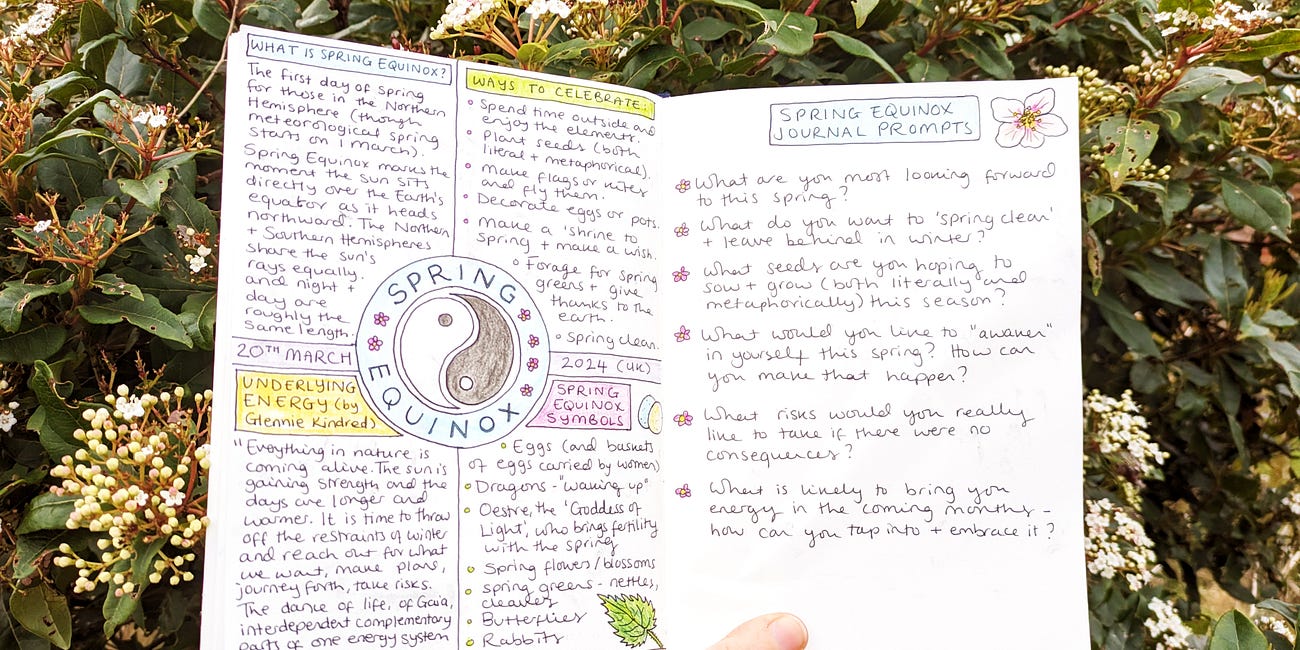 WHAT IS SPRING EQUINOX?
The first day of Spring
for those in the Northern
Hemisphere (though
meteorological spring
starts on 1 march).
Spring Equinox marks the
moment the sun sits
directly over the Earth's
equator as it heads
northward. The Northern
+ Southern Hemispheres
share the sun's
rays equally,
and night +
day are
roughly the
same length.
WAYS TO CELEBRATE:
Spend time outside and
enjoy the elements.
Plant seeds (both
literal + metaphorical).
make flags or kites
and fly them.
Decorate eggs or pots.
make a 'shrine to
Spring + make a wish.
Forage for spring
greens + give
thanks to the
earth.
Spring clean.
SPRING
EQUINOX
20TH MARCH
2024 (UK)
UNDERLYING
ENERGY (by
Glennie Kindred)
"Everything in nature is
coming alive. The sun is
gaining strength and the
days are longer and
warmer. It is time to throw
off the restraints of winter
and reach out for what
we want, make plans,
journey forth, take risks.
The dance of life, of Gaia,
interdependent complementary
parts of one energy system
SPRING
EQUINOX
SYMBOLS
Eggs (and baskets
of eggs carried by women)
Dragons - "waking up"
Oestre, the 'Goddess of
Light', who brings fertility
with the spring
Spring flowers/blossoms
spring greens - nettles,
cleavers
Butterflies
Rabbits
SPRING EQUINOX
JOURNAL PROMPTS
What are you most looking forward
to this spring?
What do you want to 'spring clean'
+ leave behind in winter?
What seeds are you hoping to
sow + grow (both literally and
metaphorically) this season?
What would you like to "awaken"
in yourself this spring? How can
you make that happen?
What risks would you really
like to take if there were no
consequences?
What is likely to bring you
energy in the coming months -
how can you tap into + embrace it?